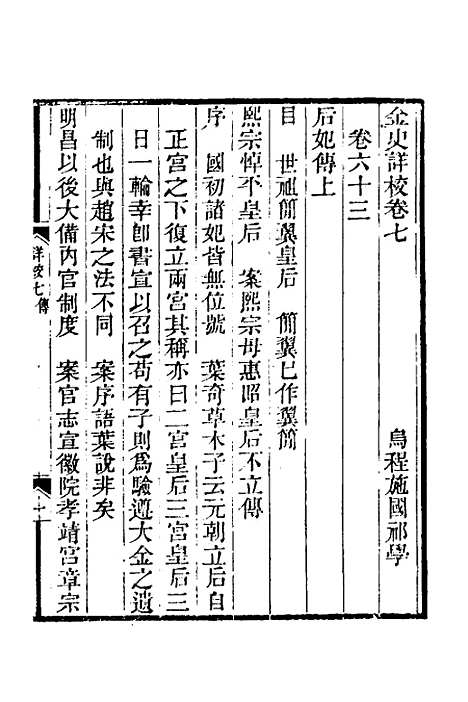 金史詳校卷七　烏程施國祁學
卷六十三
后妃傳上
目　世祖簡翼皇后　簡翼已作翼簡
熙宗悼平皇后　案熙宗母惠昭皇后不立傳
序　國初諸妃皆無位號　葉奇草木子云元朝立后自
正宮之下復立兩宮其稱亦曰二宮皇后三宮皇后三
日一輪幸卽書宣以召之苟有子則爲驗遵大金之遺
制也與趙宋之法不同　案序語葉說非矣
明昌以後大備內官制度　案官志宣徽院孝靖宮章宗
詳校七傳
一